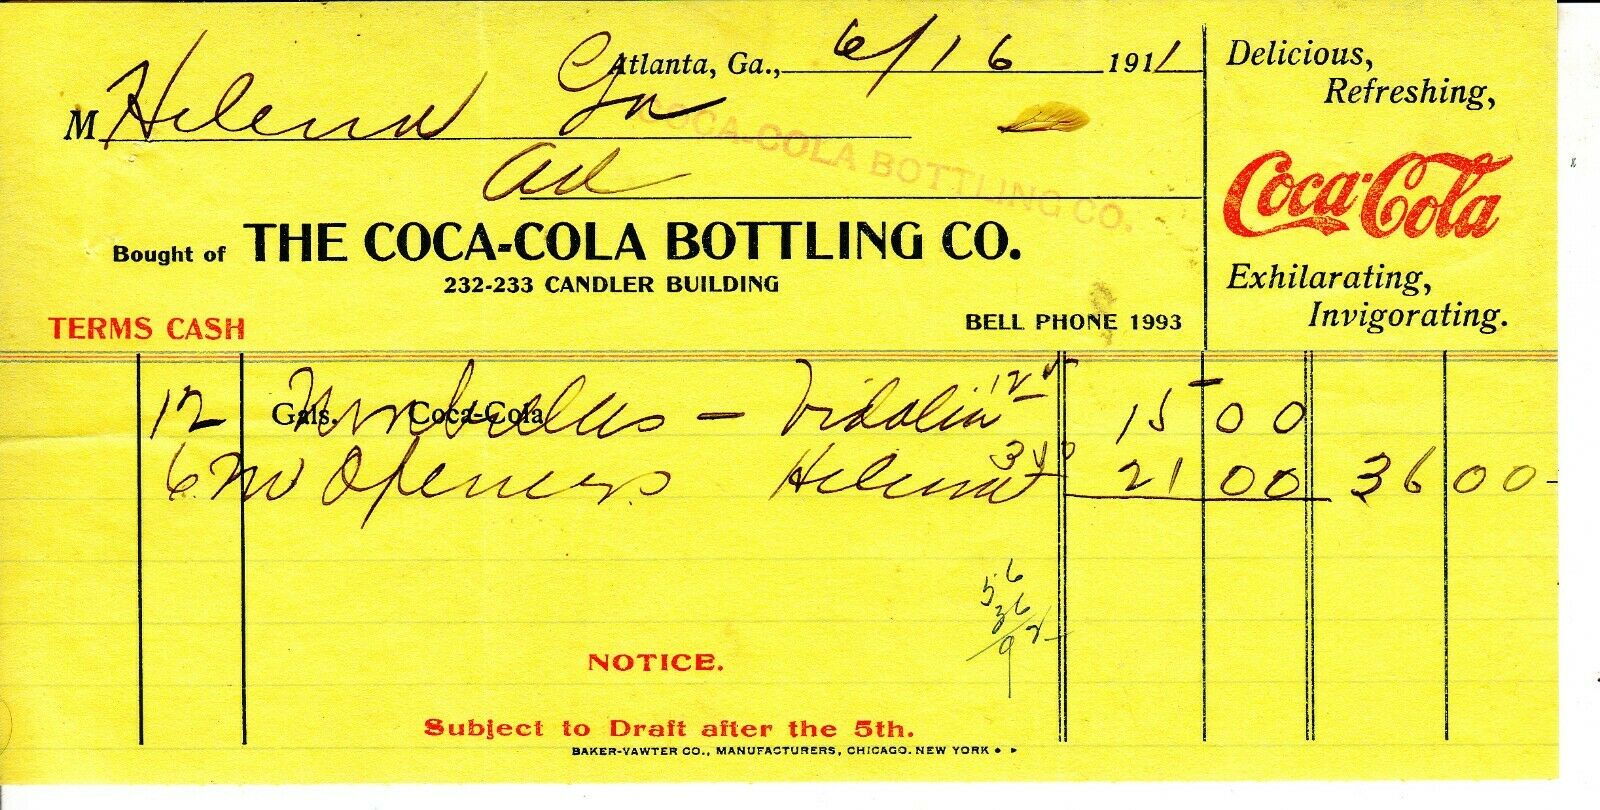 Atlanta, Ga., 6/16 1911
M Helena Ga
COCA-COLA BOTTLING CO.
Ad
Bought of THE COCA-COLA BOTTLING CO.
232-233 CANDLER BUILDING
TERMS CASH
BELL PHONE 1993
Delicious,
Refreshing,
Coca-Cola
Exhilarating,
Invigorating.
12 Gals. Coca-Cola Umbrellas - Vidalia 15 00
6 M Openers Helena 21 00 36 00
56
36
92
NOTICE.
Subject to Draft after the 5th.
BAKER-VAWTER CO., MANUFACTURERS, CHICAGO. NEW YORK